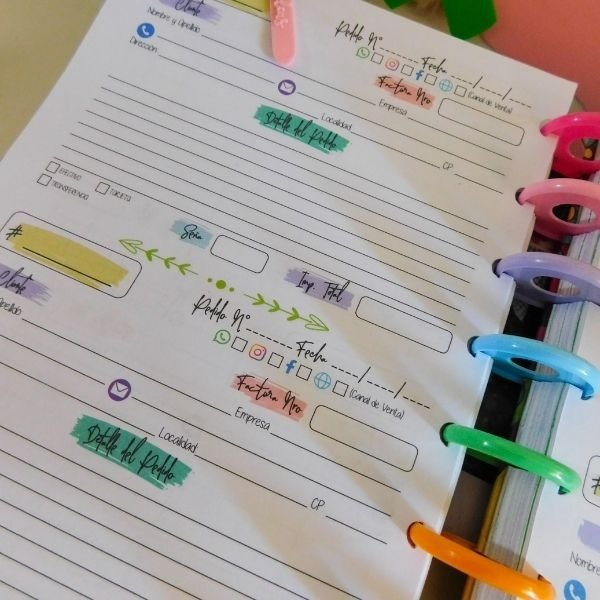 Cliente
Nombre y Apellido
Pedido Nº
Fecha / /
(Canal de Venta)
Dirección
Factura Nro
Empresa
Localidad
Detalle del Pedido
CP
EFECTIVO
TRANSFERENCIA
TARJETA
#
Seña
Imp. Total
Cliente
Apellido
Pedido Nº
Fecha / /
(Canal de Venta)
Factura Nro
Empresa
Localidad
Detalle del Pedido
CP
#
Nombre